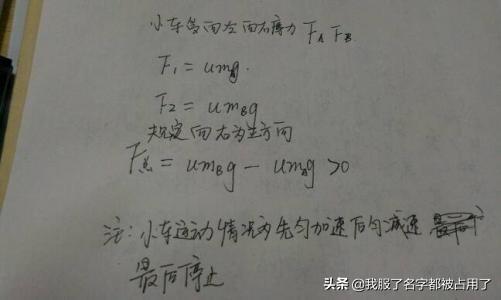 小车受向左向右摩力 FA FB
F1 = umg.
F2 = umBg
规定向右为正方向
F总 = umBg - umAg >0
注: 小车运动情况为先匀加速后匀减速
最后停止
头条 @我服了名字都被占用了